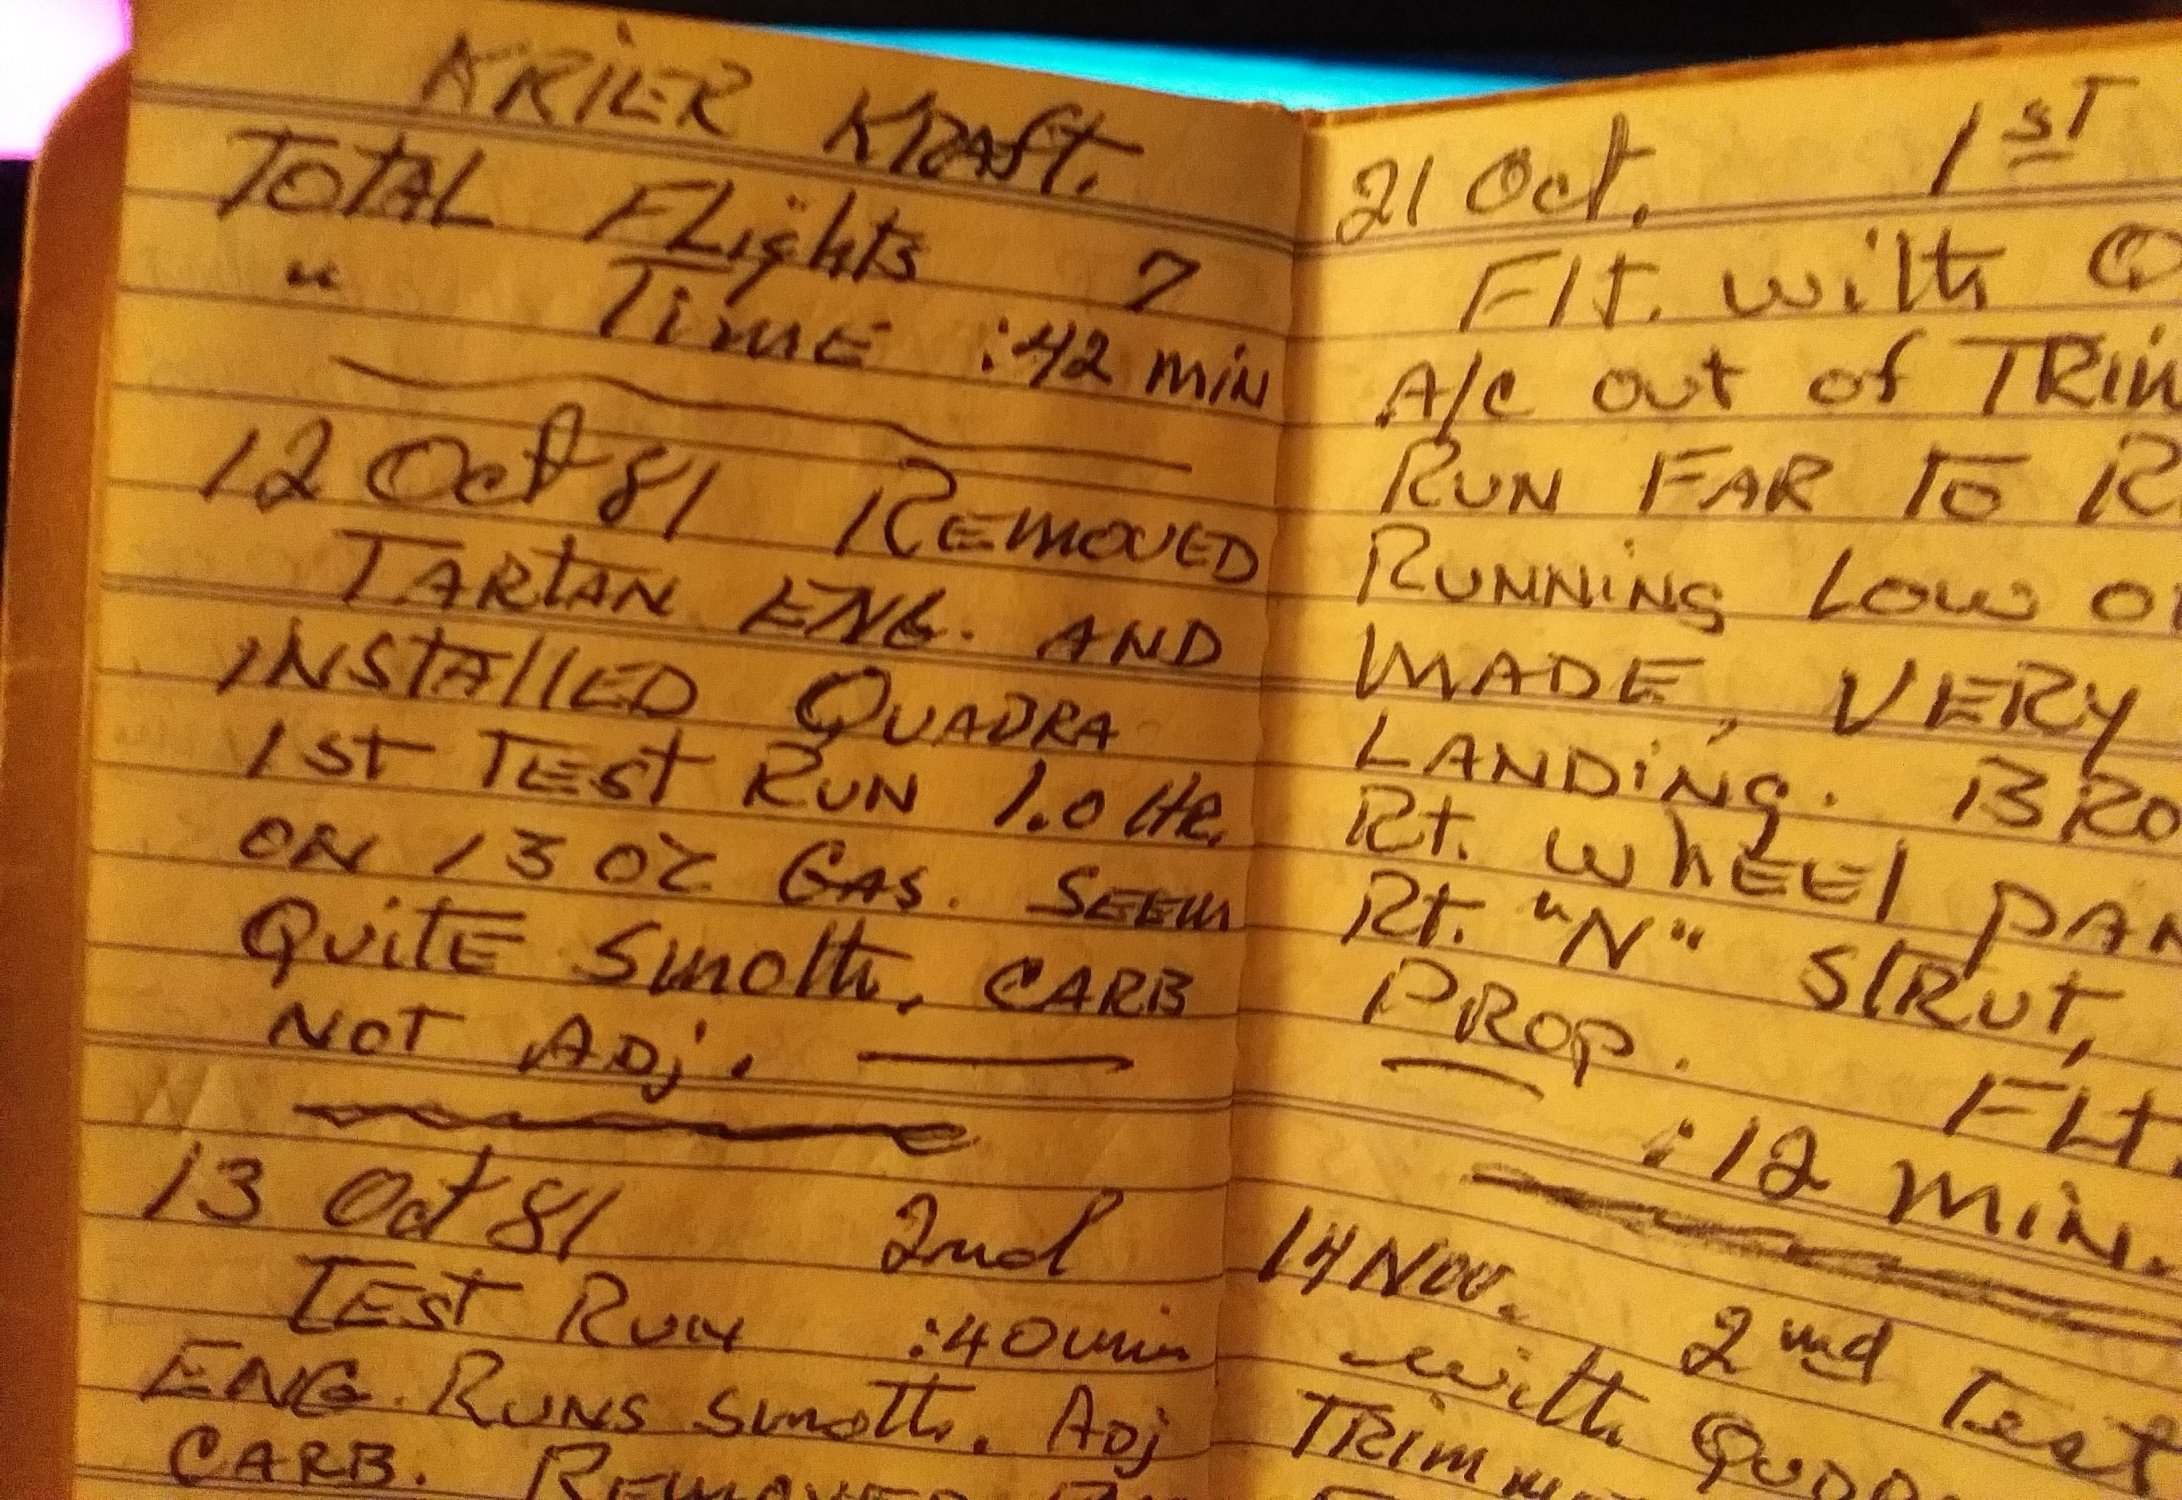 KRIER KRAft.
TOTAL FLights 7
" TIME :42 MIN
12 Oct 81 REMOVED
TARTAN ENG. AND
INSTAllED QUADRA
1ST TEST RUN 1.0 HR.
ON 13 OZ GAS. SEEM
QUITE Smoth, CARB
NOT ADj.
13 Oct 81 2nd
TEST RUN :40 min
ENG. RUNS smoth. ADj
CARB.
21 Oct. 1ST
Flt. with
A/C OUT OF
RUN FAR TO
RUNNING LOW
MADE, VERY
LANDING.
Rt. WHEEl
Rt. "N" STRUT,
PROP.
FLt.
:12 MIN.
14 Nov. 2nd Test
with